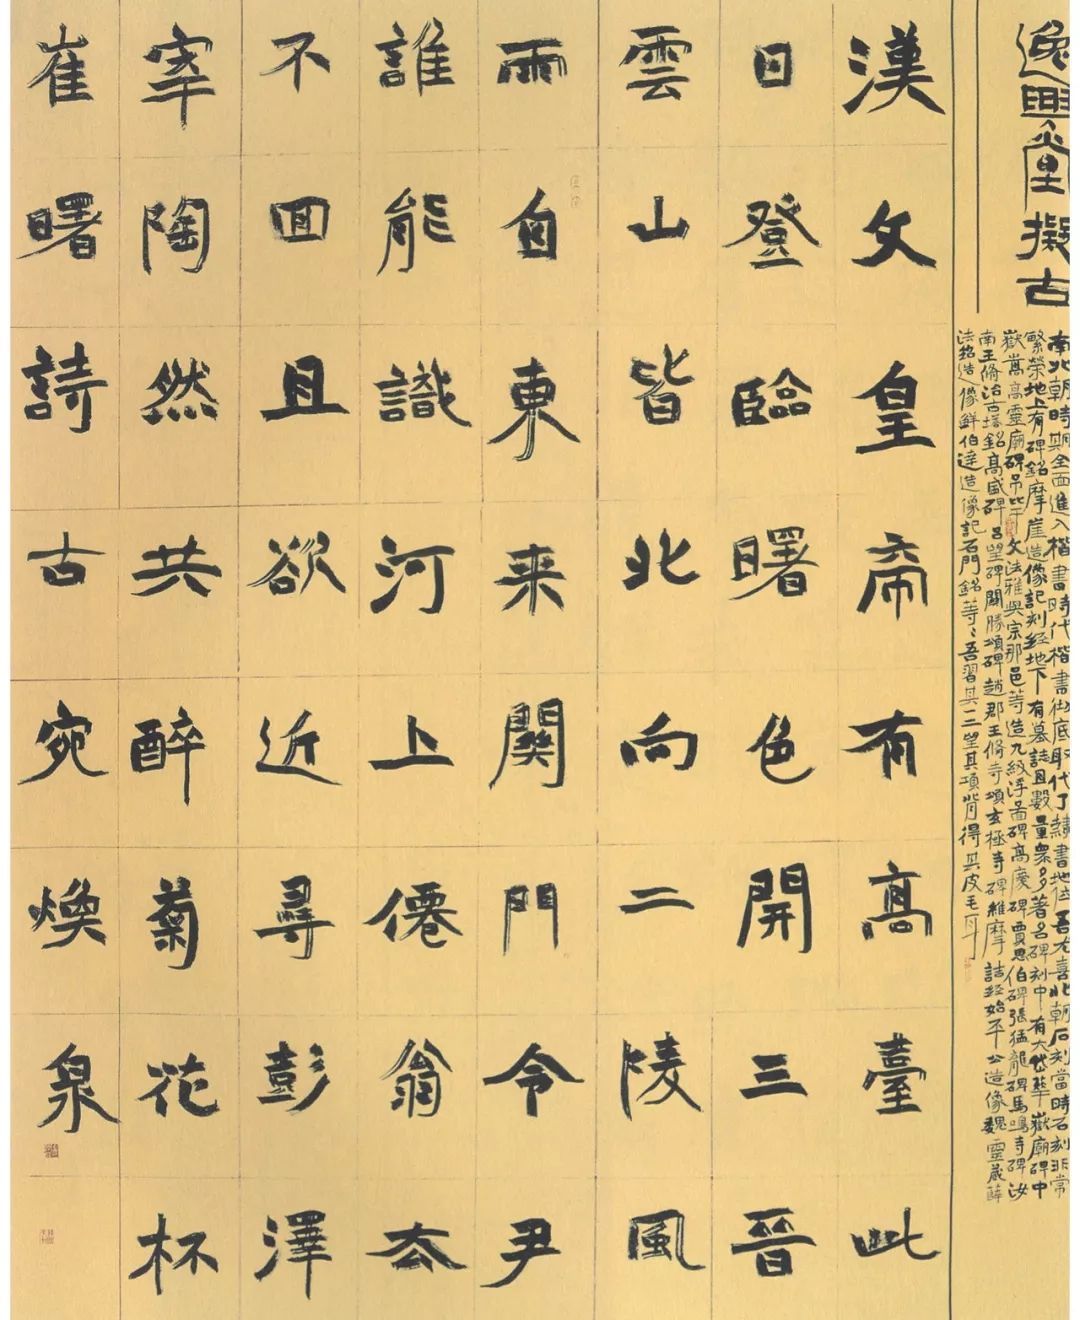 逸興堂擬古
南北朝時期全面進入楷書時代楷書徹底取代了隸書地位吾尤喜北朝石刻當時石刻非常
繁榮地上有碑銘摩崖造像記刻經地下有墓誌且數量眾多著名碑刻中有大代華嶽廟碑中
嶽嵩高靈廟碑吊比干文法雅與宗那邑等造九級浮啚碑高慶碑賈思伯碑張猛龍碑馬鳴寺碑汝
南王脩治古塔銘高盛碑呂望碑關勝頌碑趙郡王脩寺頌玄極寺碑維摩詰經始平公造像魏靈藏薛
法紹造像鮮伯達造像記石門銘等等吾習其一二望其項背得其皮毛耳
漢文皇帝有高臺此
日登臨曙色開三晉
雲山皆北向二陵風
雨自東来関門令尹
誰能識河上僊翁去
不回且欲近尋彭澤
宰陶然共醉菊花杯
崔曙詩古宛煥泉